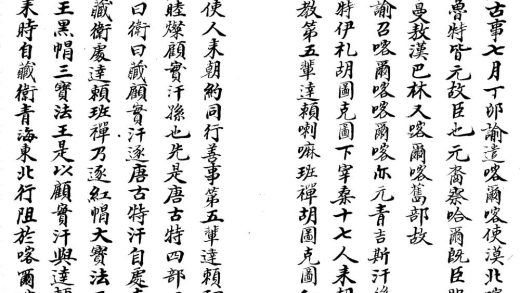 古事七月丁卯諭遣喀爾喀使漠北喀
魯特皆元故臣也元裔察哈爾旣臣
曼敖漢巴林又喀爾喀舊部故
諭召喀爾喀喀爾喀亦元青吉斯汗
特伊礼胡圖克圖下宰桑十七人来
教第五輩達頼喇嘛班禪胡圖克圖
使人来朝約同行善事第五輩達頼
睦燦顧實汗孫也先是唐古特四部
曰衛曰藏顧實汗逐唐古特汗自處
藏衛處達頼班禪乃逐紅帽大寶法
王黑帽三寶法王是以顧實汗與達
来時自藏衛青海東北行阻於喀爾